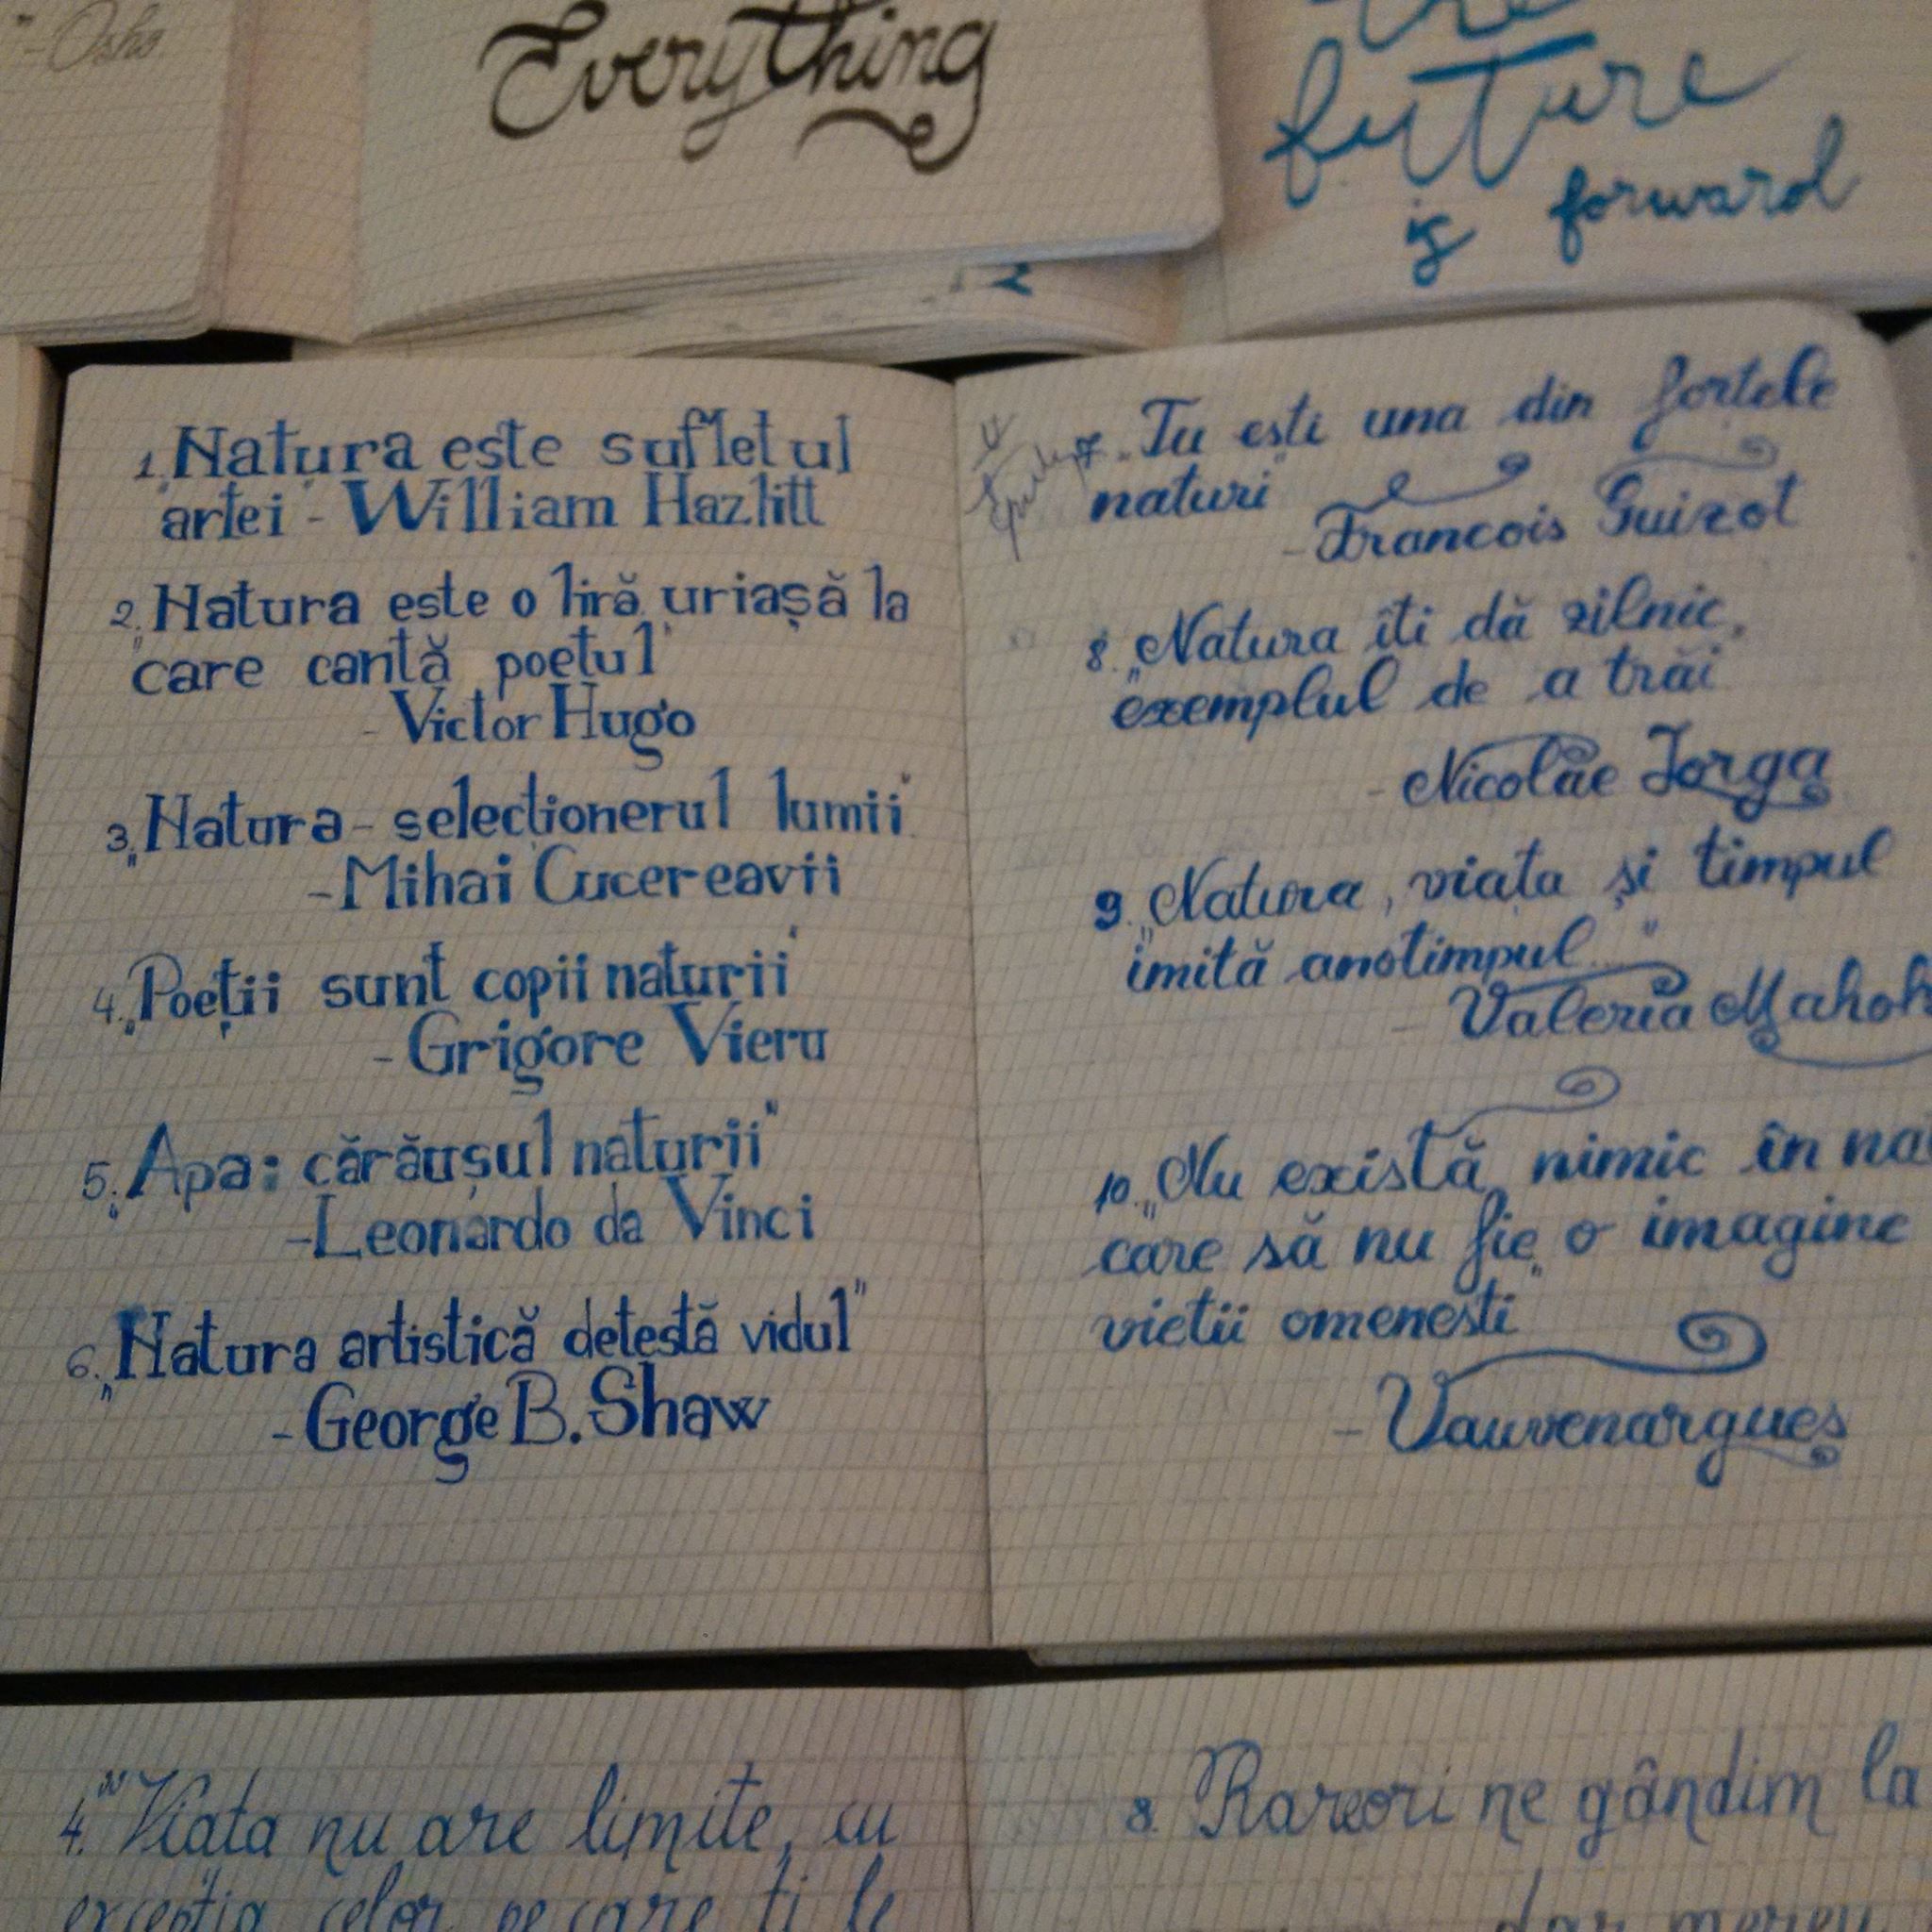 "-Osho
Everything
the
future
is forward
1. „Natura este sufletul
artei" - William Hazlitt
2. „Natura este o liră uriașă la
care cantă poetul"
- Victor Hugo
3. „Natura - selecționerul lumii"
- Mihai Cucereavii
4. „Poeții sunt copii naturii"
- Grigore Vieru
5. „Apa: cărăușul naturii"
- Leonardo da Vinci
6. „Natura artistică detestă vidul"
- George B. Shaw
7. „Tu ești una din forțele
naturi"
- Francois Guizot
8. „Natura îti dă zilnic,
exemplul de a trăi"
- Nicolae Iorga
9. „Natura, viața și timpul
imită anotimpul..."
- Valeria Mahok
10. „Nu există nimic în na
care să nu fie o imagine
vietii omenesti"
- Vauvenargues
4. "Viața nu are limite, cu
excepția celor pe care ți le
8. Rareori ne gândim la
dar mereu